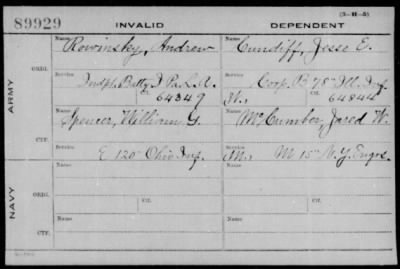 (3-H-5)
89929 INVALID DEPENDENT
Name Rowinsky, Andrew Name Cundiff, Jesse E.
ARMY
ORIG.
Service Indpt. Batty. I Pa. L. A. Service Corp. B 78" Ill. Inf.
Ctf. 64349 W. Ctf. 64344
Name Spencer, William G. Name McCumber, Jared W.
CTF.
Service E 120" Ohio Inf. Service M. M 15" N.Y. Engrs.
Name Name
NAVY
ORIG.
Service Service
Ctf. Ctf.
Name Name
CTF.
Service Service